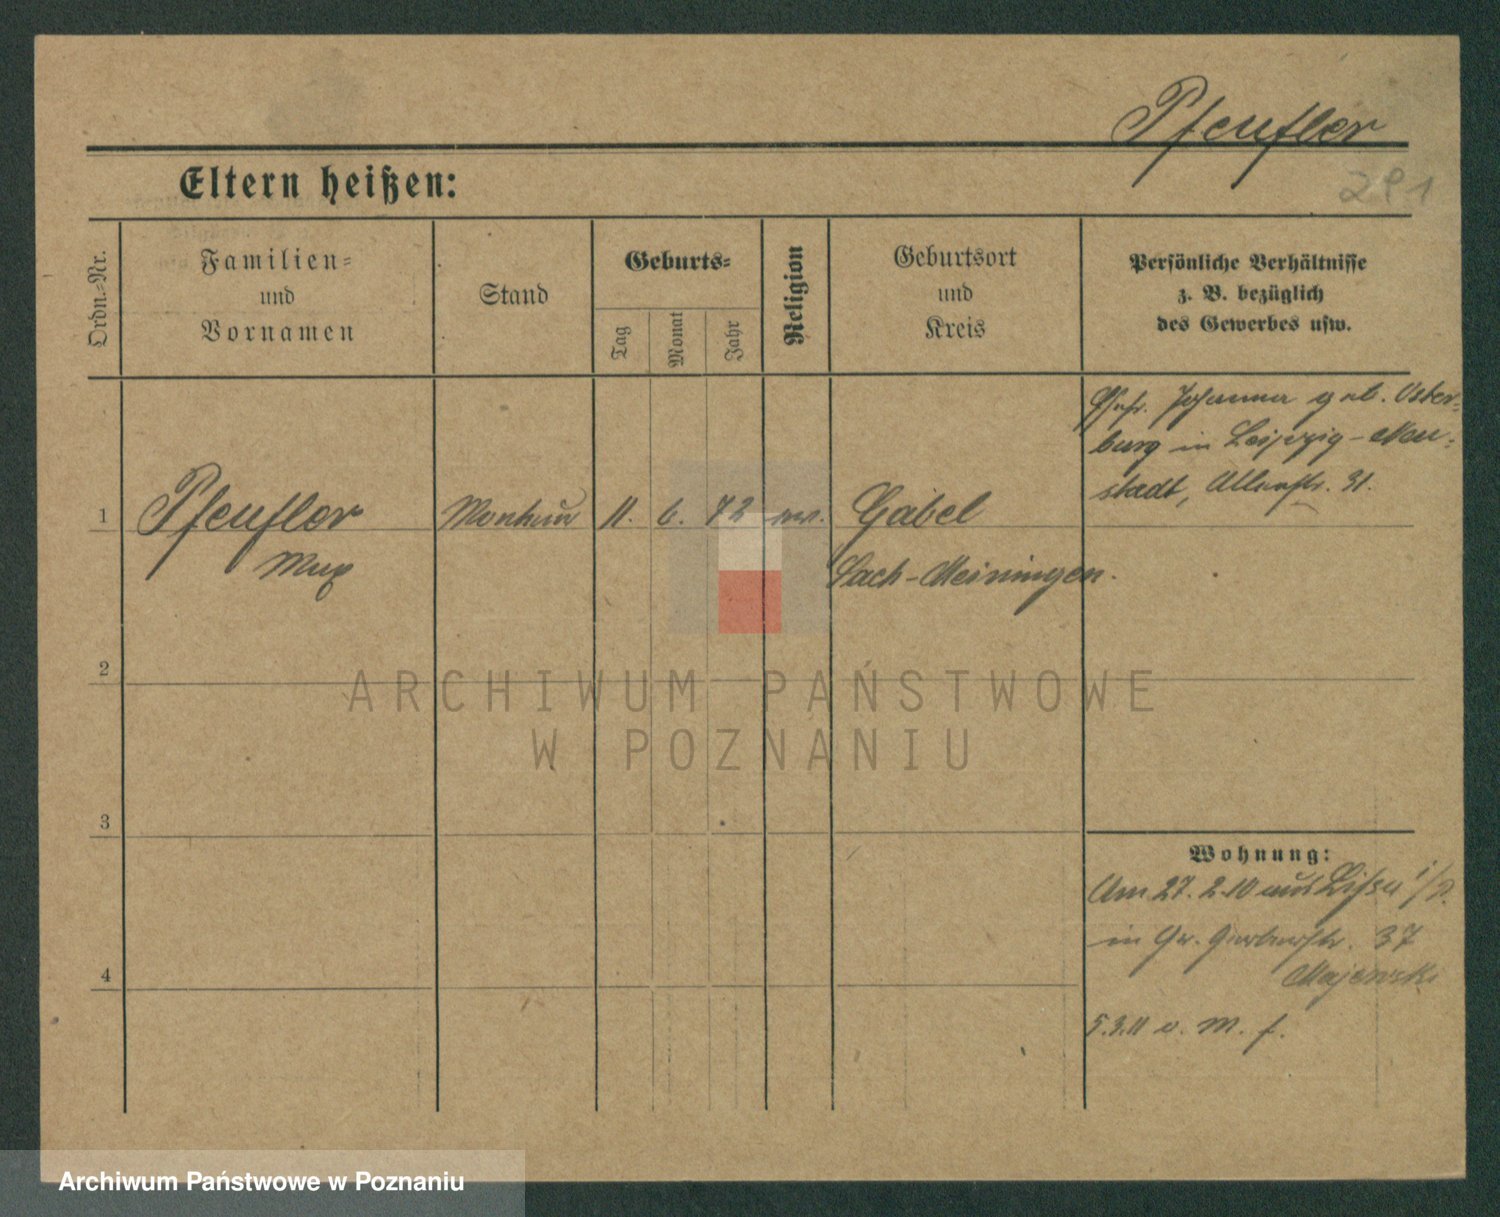 Pfeufler
291
Eltern heißen:
Ordn.=Nr.
Familien=
und
Vornamen
Stand
Geburts=
Tag
Monat
Jahr
Religion
Geburtsort
und
Kreis
Persönliche Verhältnisse
z. B. bezüglich
des Gewerbes usw.
Ehefr. Johanna geb. Oster-
burg in Leipzig-Neu-
stadt, 31.
1
Pfeufler
Max
Monteur
11. 6. 72
ev.
Gabel
Sach-Meiningen.
2
ARCHIWUM PAŃSTWOWE
W POZNANIU
3
Wohnung:
Am 27. 2. 10 aus Lissa i/P.
in Gr. Gerberstr. 37
Majewski
5.3.11 v. M. f.
4
Archiwum Państwowe w Poznaniu